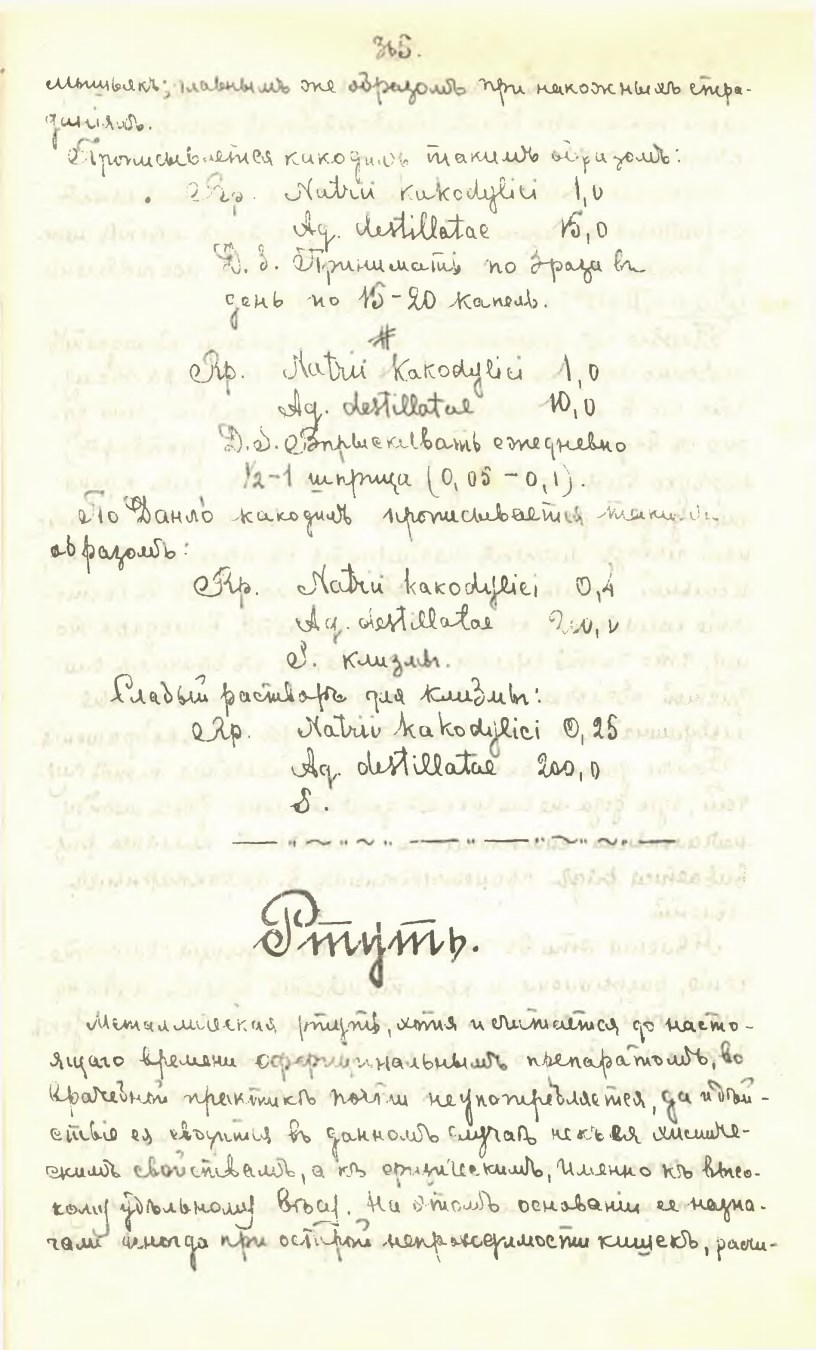 365.
мышьякъ; главнымъ же образомъ при накожныхъ стра-
данiяхъ.
Прописывается какодилъ такимъ образомъ:
Rp. Natrii kakodylici 1,0
Aq. destillatae 15,0
D. S. Принимать по 3 раза въ
день по 15-20 капель.
#
Rp. Natrii kakodylici 1,0
Aq. destillatae 10,0
D. S. Впрыскивать ежедневно
1/2-1 шприца (0,05 - 0,1).
По Данло какодилъ прописывается такимъ
образомъ:
Rp. Natrii kakodylici 0,4
Aq. destillatae 200,0
S. клизмы.
Слабый растворъ для клизмы:
Rp. Natrii kakodylici 0,25
Aq. destillatae 200,0
S.
Ртуть.
Металлическая ртуть, хотя и считается до насто-
ящаго времени оффицинальнымъ препаратомъ, во
врачебной практикѣ почти неупотребляется, да и дѣй-
ствiе ея сводится въ данномъ случаѣ не къ ея химиче-
скимъ свойствамъ, а къ физическимъ, именно къ высо-
кому удѣльному вѣсу. На этомъ основанiи ее назна-
чали иногда при острой непроходимости кишекъ, расчи-